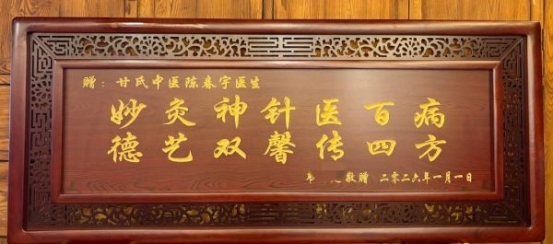 赠：甘氏中医陈春宇医生
妙灸神针医百病
德艺双馨传四方
敬赠 二零二六年一月一日